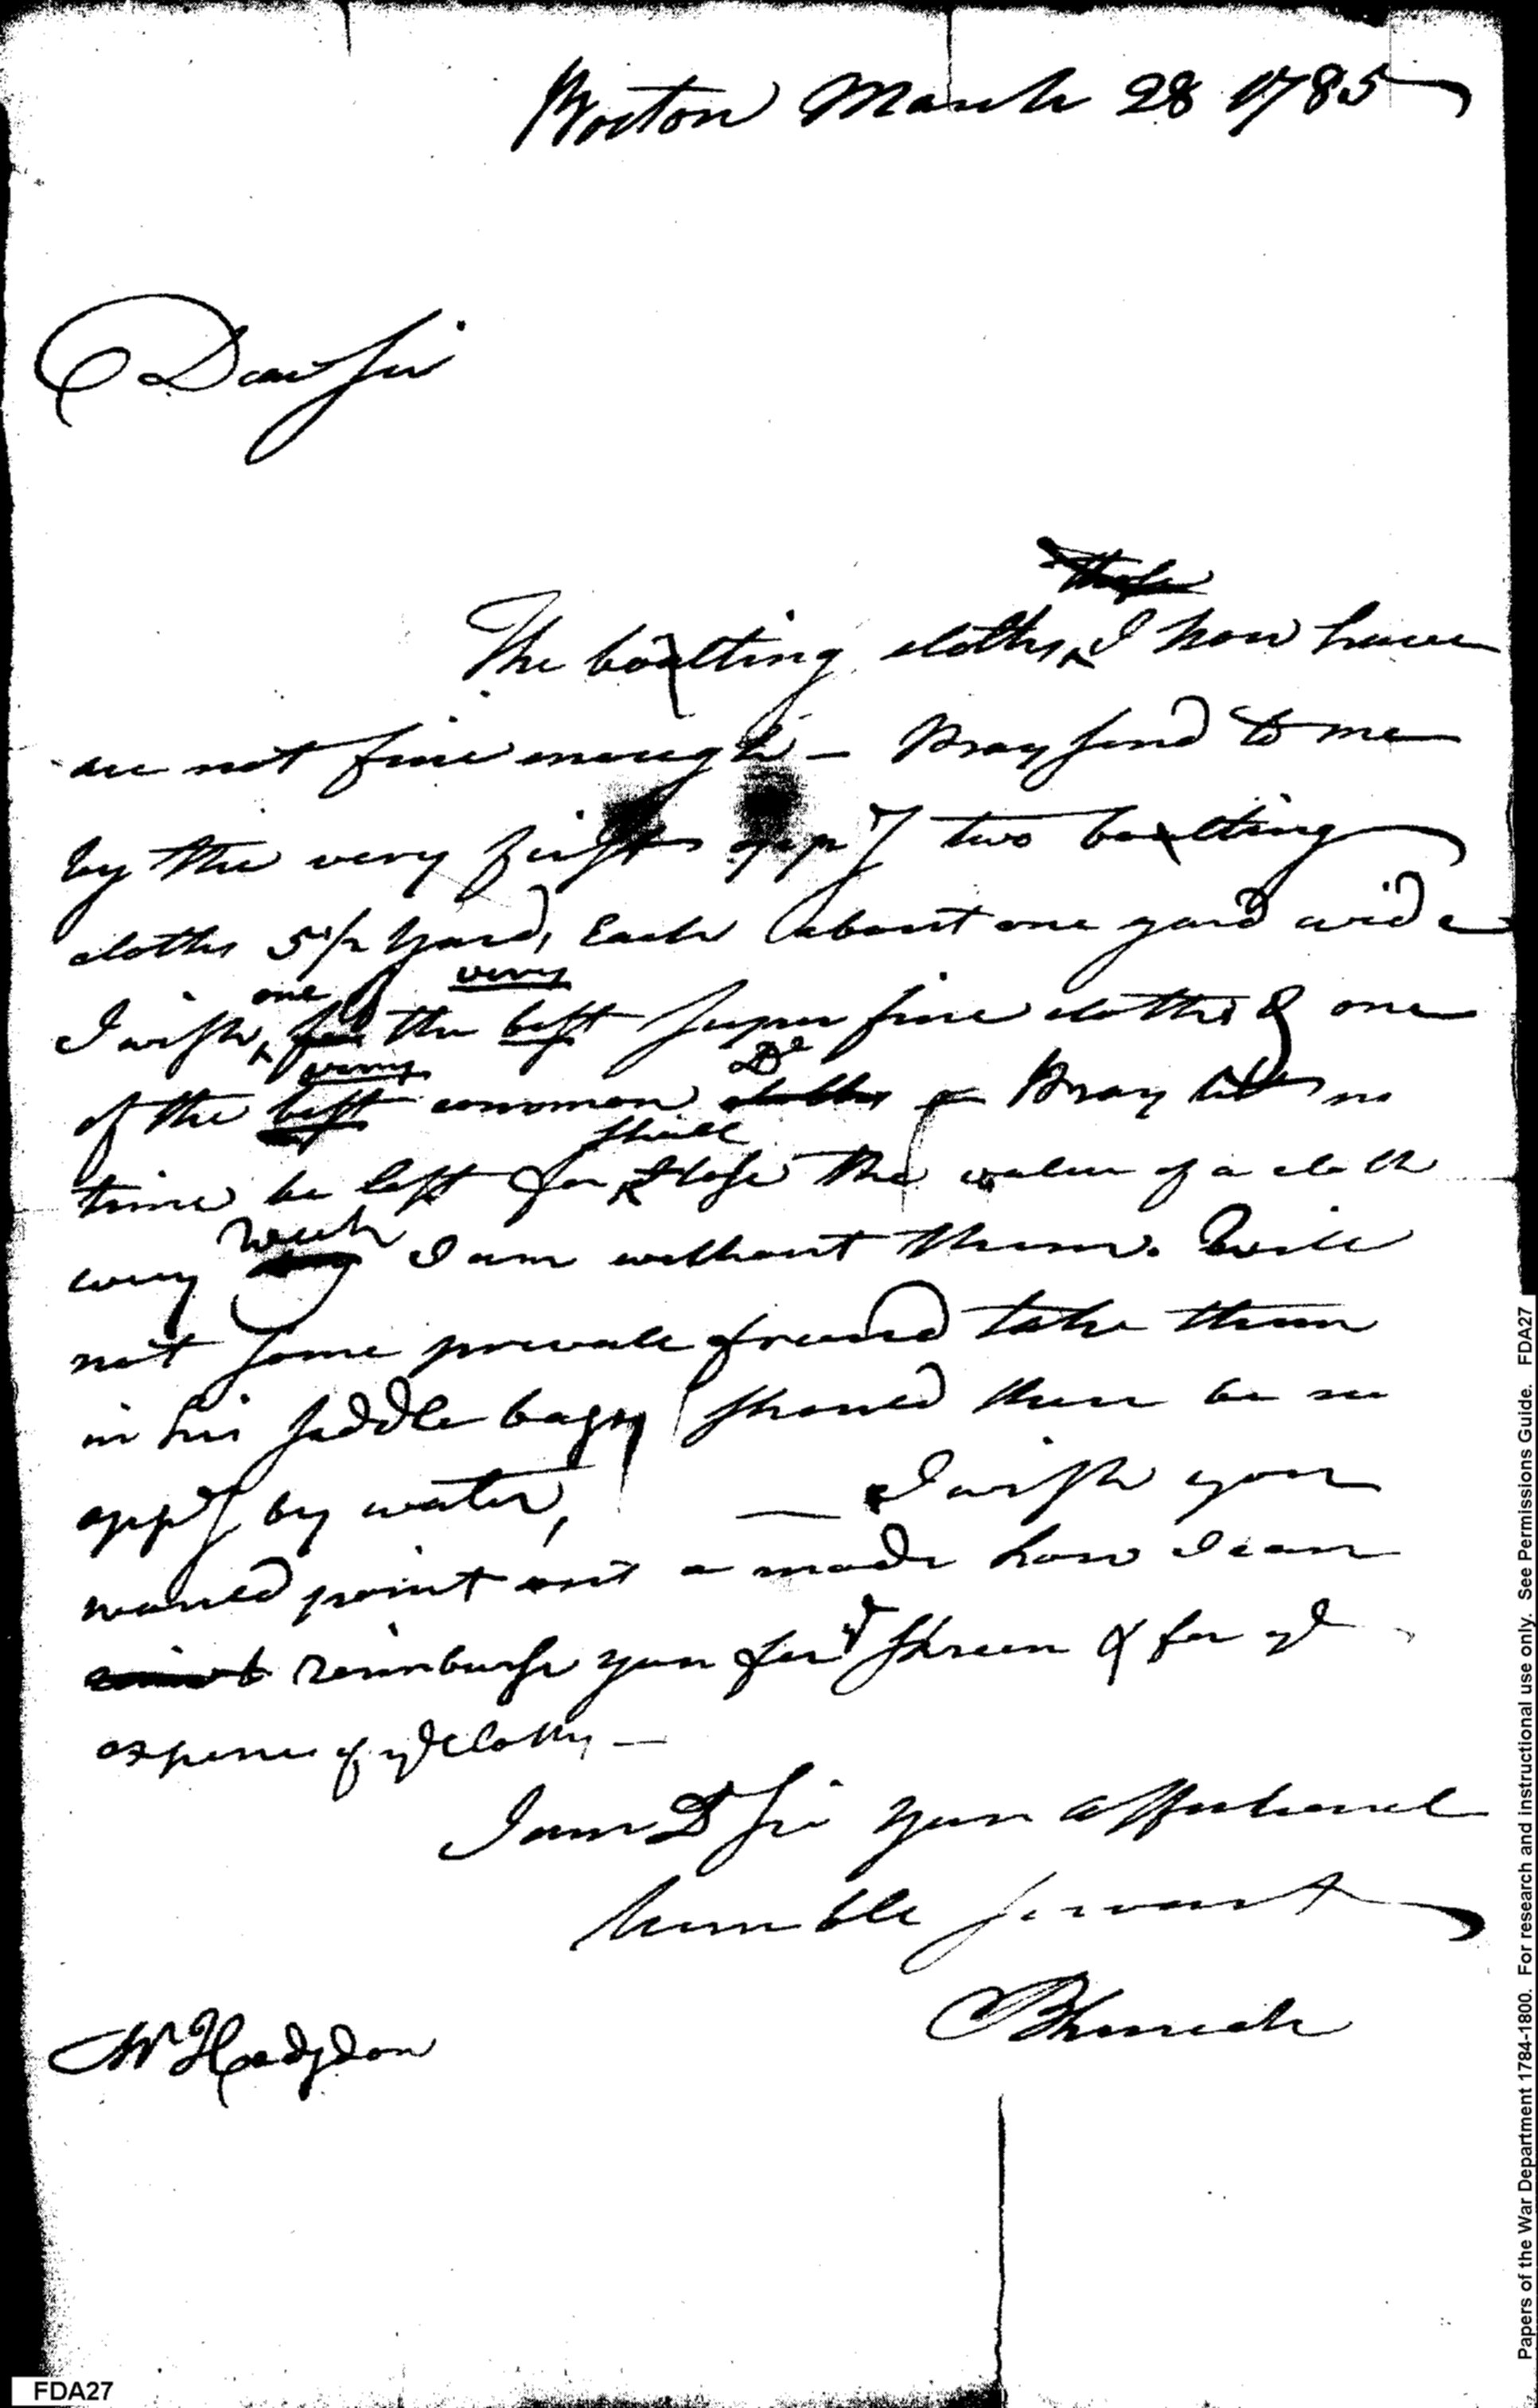 Worton March 28 1785
Dear Sir
The bolting cloths I now have
are not fine enough — Pray send to me
by the very first oppy two bolting
cloths 5 1/2 Yards, Each about one yard wide
I wish one the very best super fine cloths & one
of the very best common Do Pray let no
time be lost for I shall lose the value of a cloth
every week I am without them. Will
not some private friend take them
in his saddle bags should there be no
oppy by water, — I wish you
would point out a mode how I can
reimburse you for ye skreen & for ye
expence of ye Cloths —
I am Dr Sir your affectionate
humble servant
Mr Hodgdon
FDA27
Papers of the War Department 1784-1800. For research and instructional use only. See Permissions Guide. FDA27